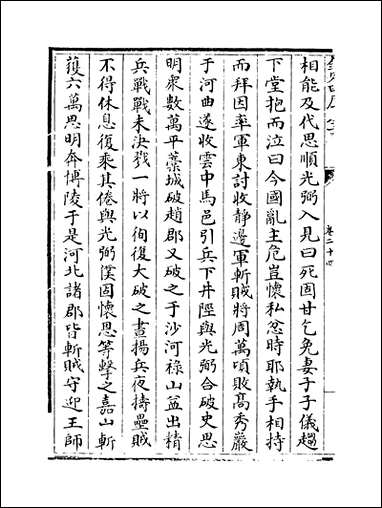 相能及代思順光弼入見曰死固甘乞免妻子子儀趨
下堂抱而泣曰今國亂主危豈懷私忿時耶執手相持
而拜因率軍東討收静邊軍斬賊將周萬頃敗髙秀巖
于河曲遂收雲中馬邑引兵下井陘與光弼合破史思
明衆數萬平藁城破趙郡又破之于沙河禄山益出精
兵戰戰未決戮一將以徇復大破之晝揚兵夜擣壘賊
不得休息復乘其倦與光弼僕固懷恩等擊之嘉山斬
獲六萬思明奔博陵于是河北諸郡皆斬賊守迎王師
卷二十四